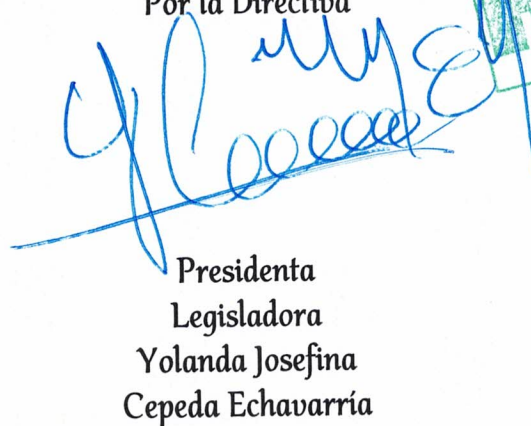 Por la Directiva
Presidenta
Legisladora
Yolanda Josefina
Cepeda Echavarría